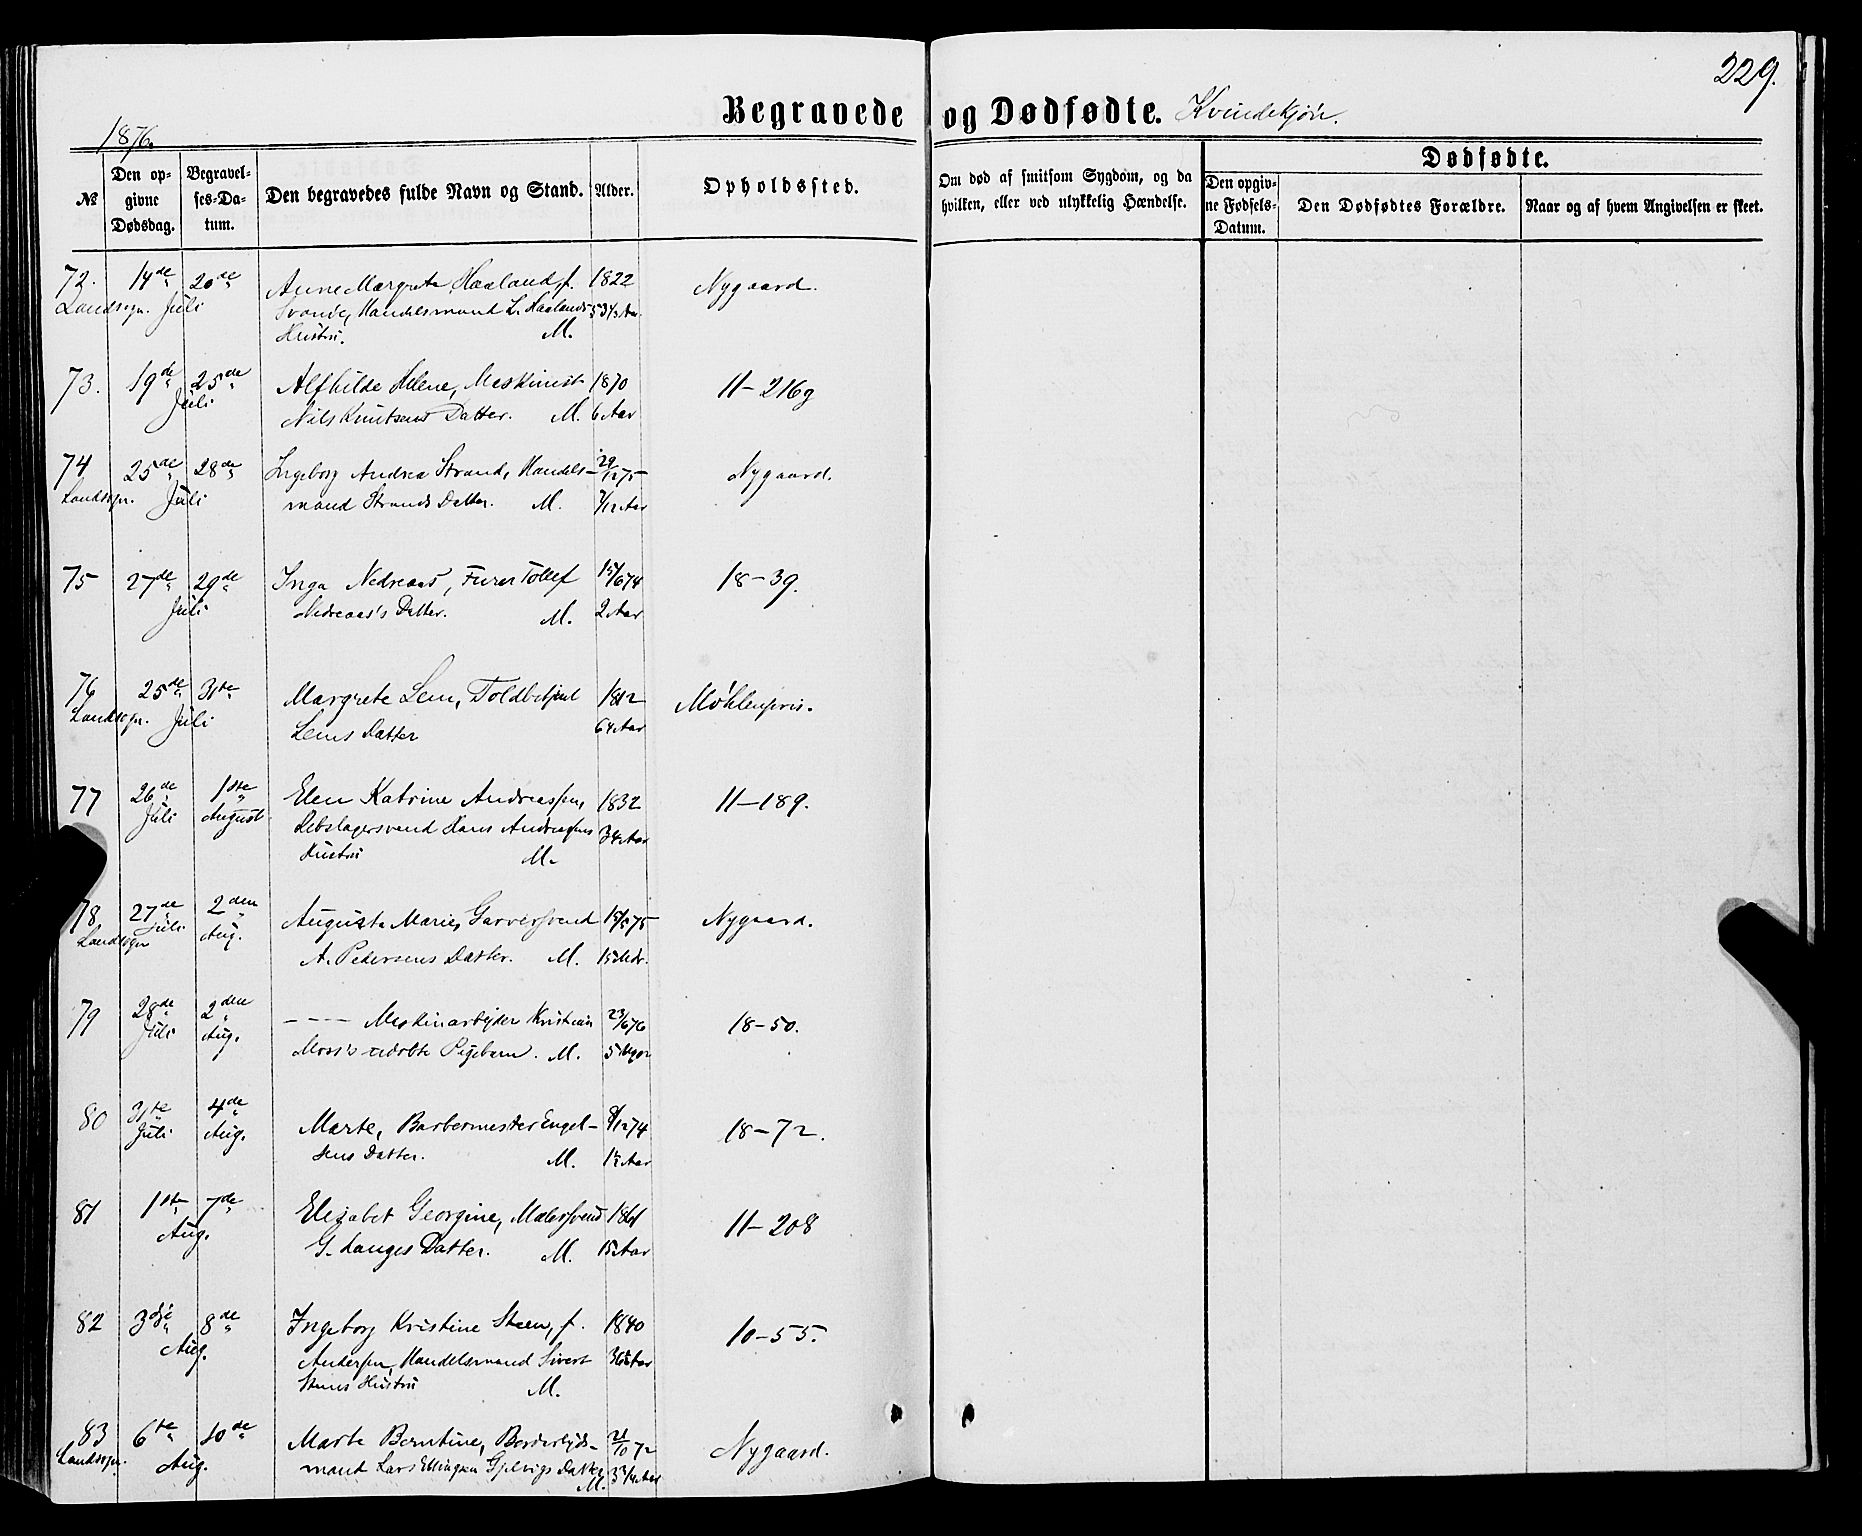 229.
Begravede og Dødfødte. Kvindekjön.
1876.
№
Den opgivne Dødsdag.
Begravelses-Datum.
Den begravedes fulde Navn og Stand.
Alder.
Opholdssted.
Om død af smitsom Sygdom, og da hvilken, eller ved ulykkelig Hændelse.
Dødfødte.
Den opgivne Fødsels-Datum.
Den Dødfødtes Forældre.
Naar og af hvem Angivelsen er skeet.
72. 14de 20de Anne Margrete Haaland, f. 1822 Nygaard.
Landsogn. Juli Handelsmand L. Haalands 53 1/2 Aar
Hustru. M.
73. 19de 25de Alfhilde Helene, Maskinist 1870 11-216g
Juli Nils Knutsens Datter. M. 6 Aar
74 25de 28de Ingeborg Andrea Strand, Handels- 29/12 75 Nygaard.
Landsogn. Juli mand Strands Datter. M. 7/12 Aar
75 27de 29de Inga Nedreaas, Furer Tollef 15/6 74 18-39.
Juli Nedreaas's Datter. M. 2 Aar
76 25de 31te Margrete Lem, Toldbetjent 1812 Møhlenpris.
Landsogn. Juli Lems Datter 64 Aar
77 26de 1ste Elen Katrine Andreassen, 1832 11-189.
Juli August Rebslagersvend Hans Andreassens 34 Aar
Hustru M.
78 27de 2den Augusta Marie, Garversvend 15/5 75 Nygaard.
Landsogn Juli Aug. A. Pedersens Datter. M. 15 Mdr.
79 28de 2den ---- Maskinarbejder Kristian 23/6 76 18-50.
Juli Aug. Moss's udøbte Pigebarn. M. 5 Uger
80 31te 4de Marte, Barbermester Engel- 8/12 74 18-72.
Juli Aug. sens Datter. M. 1½ Aar
81 1ste 7de Elisabet Georgine, Malersvend 1861 11-208
Aug. G. Langes Datter. M. 15 Aar
82 3dje 8de Ingeborg Kristine Steen, f. 1840 10-55.
Aug. Andersen, Handelsmand Sivert 36 Aar
Steens Hustru M.
83 6te 10de Marte Berntine, 21/10 72 Nygaard.
Landsogn. Aug. mand Lars Ellingsen Gjelvigs Datter 3 3/4 Aar
M.